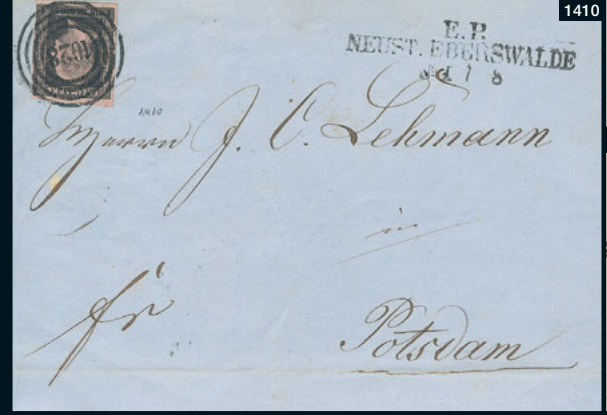 1410
E.P.
NEUST. EBERSWALDE
7 8
1028
1410
Herrn J. C. Lehmann
in
fr
Potsdam